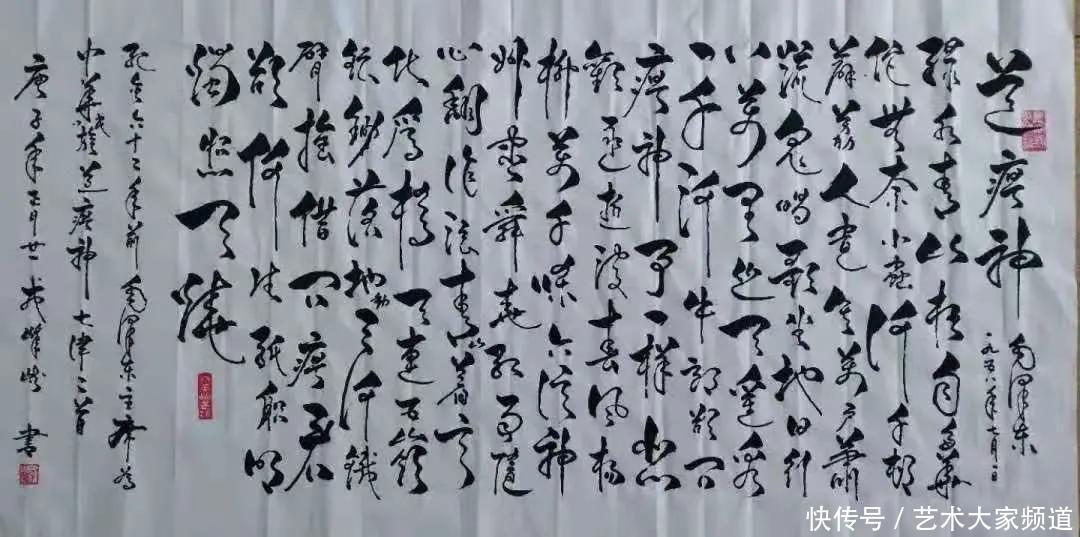 送瘟神
毛泽东
一九五八年七月一日
绿水青山枉自多华
佗无奈小虫何千村
薜荔人遗矢万户萧
疏鬼唱歌坐地日行
八万里巡天遥看
一千河牛郎欲问
瘟神事一样悲
欢逐逝波春风杨
柳万千条六亿神
州尽舜尧红雨随
心翻作浪青山着意
化为桥天连五岭
银锄落地动三河铁
臂摇借问瘟君
欲何往纸船明
烛照天烧
纪念六十二年前毛泽东主席为
中华民族送瘟神七律二首
庚子年正月廿一 书
快传号 / 艺术大家频道